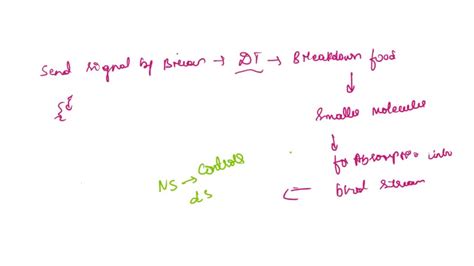 Send signal by Brain → DT → Breakdown food
↓
Smaller molecule
↓
for Absorption into
blood stream
NS → controls
dS